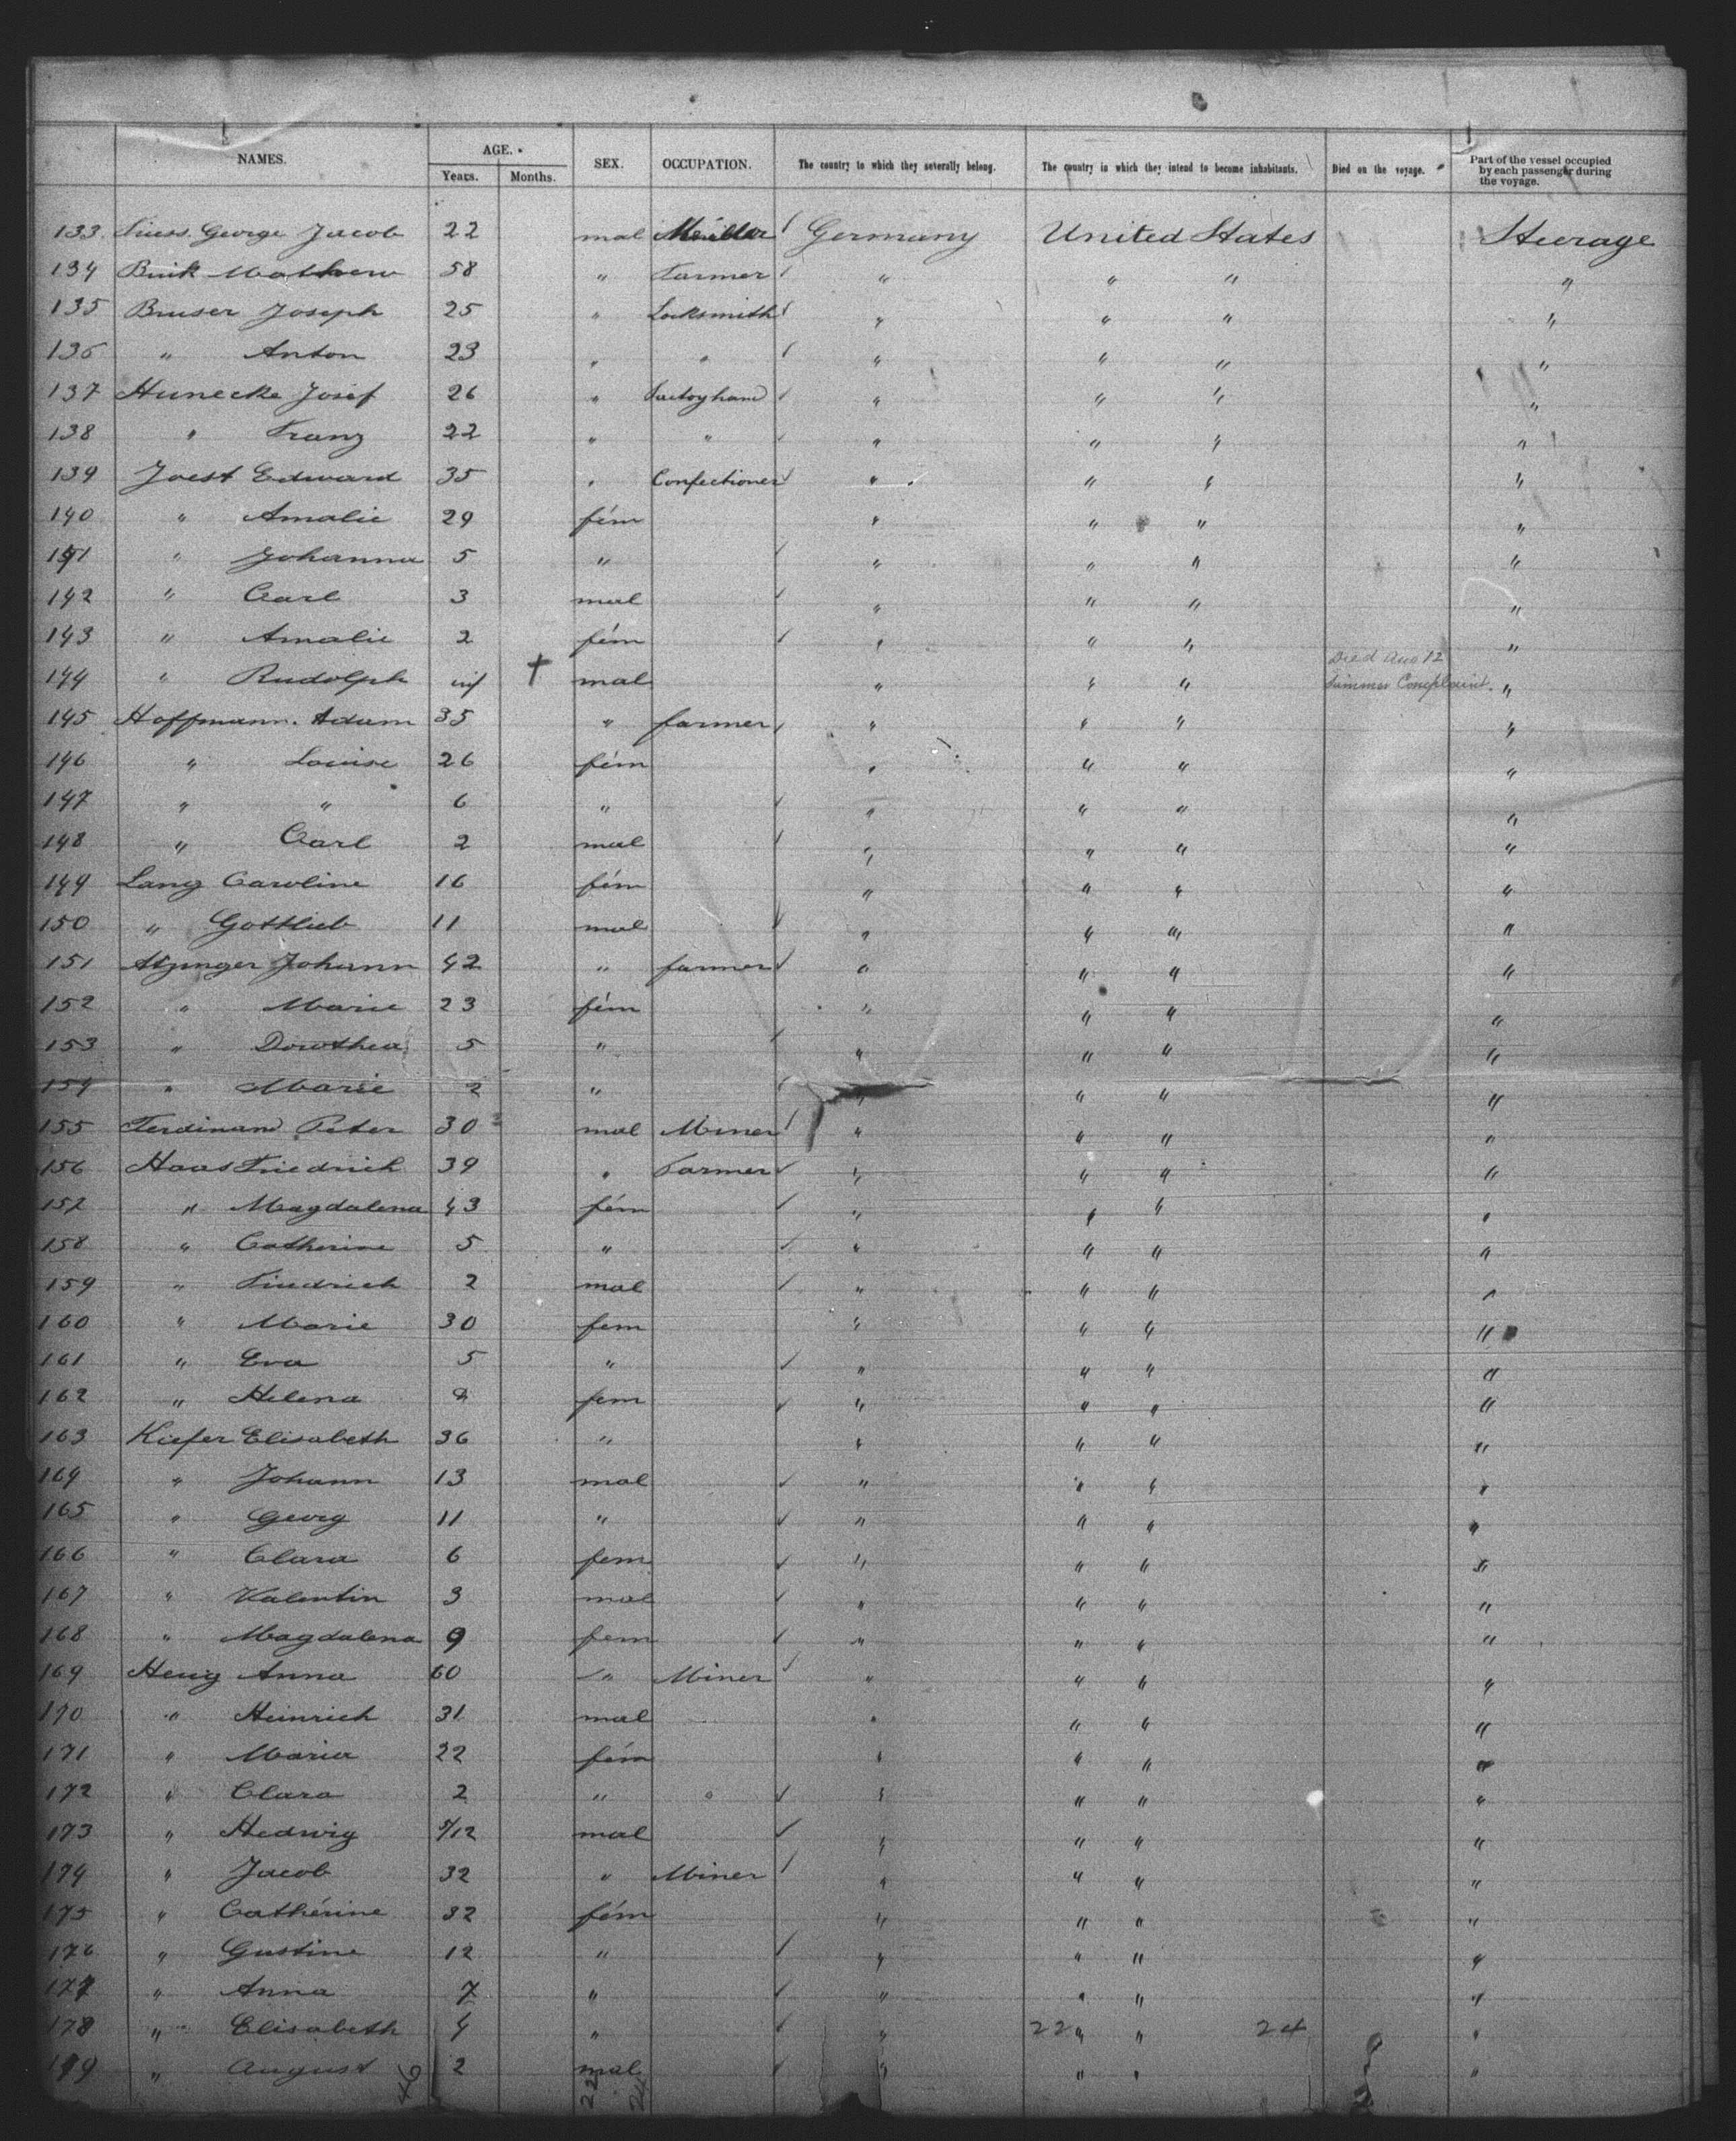 NAMES. AGE. Years. Months. SEX. OCCUPATION. The country to which they severally belong. The country in which they intend to become inhabitants. Died on the voyage. Part of the vessel occupied by each passenger during the voyage.
133 George Jacob 22 mal Germany United States Steerage
134 58 " Farmer " " " "
135 Bruser Joseph 25 " Locksmith " " " "
136 " Anton 23 " " " " " "
137 Hunecke Josef 26 " " " " "
138 " Franz 22 " " " " " "
139 Joest Edward 35 " Confectioner " " " "
140 " Amalie 29 fém " " " "
141 " Johanna 5 " " " " "
142 " Carl 3 mal " " " "
143 " Amalie 2 fém " " " "
144 " Rudolph inf † mal " " " Died Aug 12 Summer Complaint. "
145 Hoffmann. Adam 35 " farmer " " " "
146 " Louise 26 fém " " " "
147 " " 6 " " " " "
148 " Carl 2 mal " " " "
149 Lang Caroline 16 fém " " " "
150 " Gottlieb 11 mal " " " "
151 Atzinger Johann 42 " farmer " " " "
152 " Marie 23 fém " " " "
153 " Dorothea 5 " " " " "
154 " Marie 2 " " " " "
155 Ferdinand Peter 30 mal Miner " " " "
156 Haas Friedrich 39 " Farmer " " " "
157 " Magdalena 43 fém " " " "
158 " Catherine 5 " " " " "
159 " Friedrich 2 mal " " " "
160 " Marie 30 fem " " " "
161 " Eva 5 " " " " "
162 " Helena fem " " " "
163 Kiefer Elisabeth 36 " " " " "
164 " Johann 13 mal " " " "
165 " Georg 11 " " " " "
166 " Clara 6 fem " " " "
167 " Valentin 3 mal " " " "
168 " Magdalena 9 fem " " " "
169 Anna 60 " Miner " " " "
170 " Heinrich 31 mal " " " "
171 " Maria 22 fém " " " "
172 " Clara 2 " " " " "
173 " Hedwig 5/12 mal " " " "
174 " Jacob 32 " Miner " " " "
175 " Cathérine 32 fém " " " "
176 " Gustine 12 " " " " "
177 " Anna 7 " " " " "
178 " Elisabeth 4 " " 22 " " 24 "
179 " August 2 mal " " " "
46 22 24